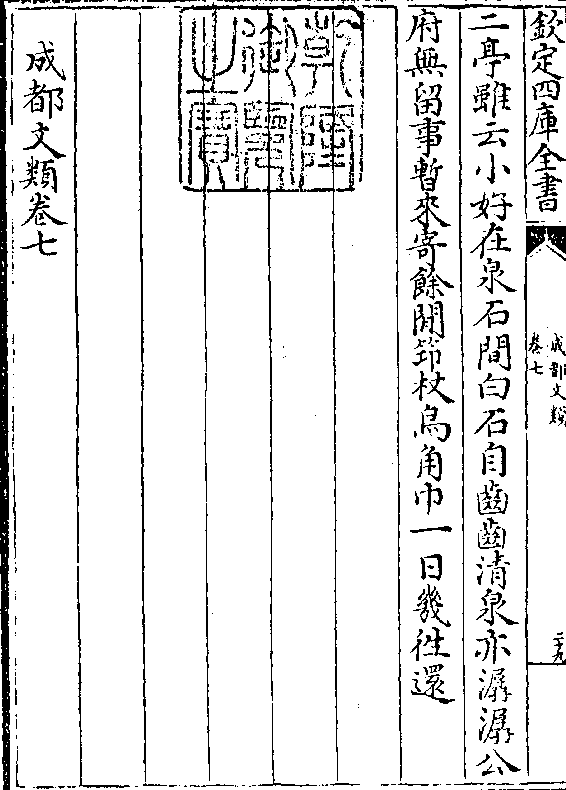 欽定四庫全書
成都文類
卷七
二十九
二亭雖云小好在泉石間白石自齒齒清泉亦潺潺公
府無留事暫來寄餘閒笻杖烏角巾一日幾徃還
乾隆
御覽
之寶
成都文類卷七